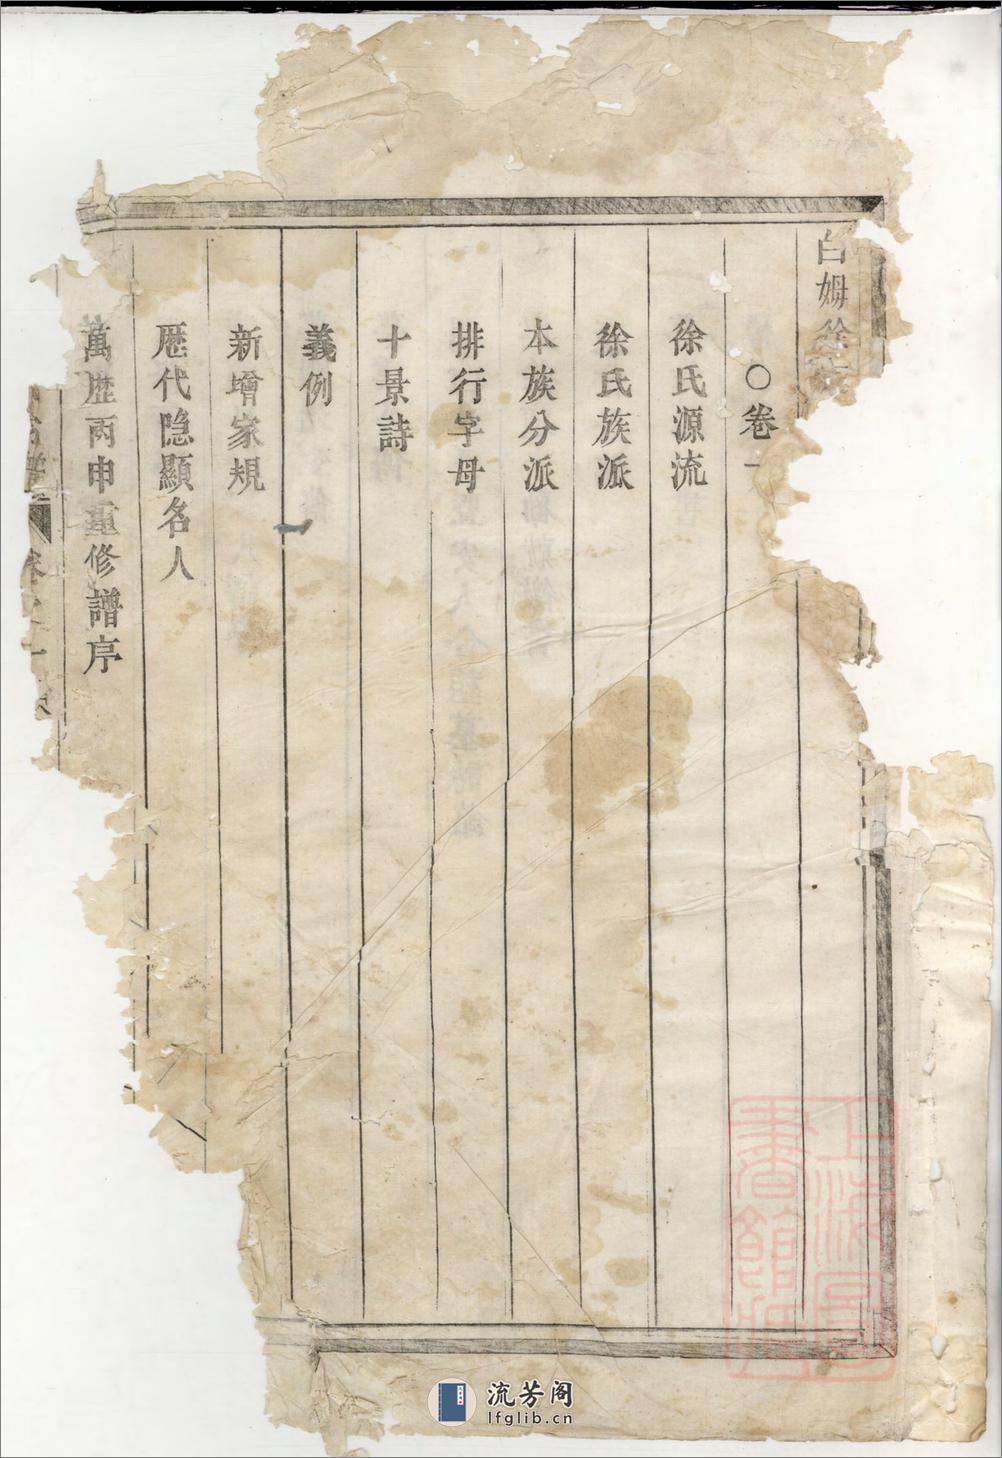 白姆徐氏
○卷一
徐氏源流
徐氏族派
本族分派
排行字母
十景詩
義例
新增家規
歷代隐顯名人
萬歷丙申重修譜序
上海圖書館藏
流芳阁
lfglib.cn